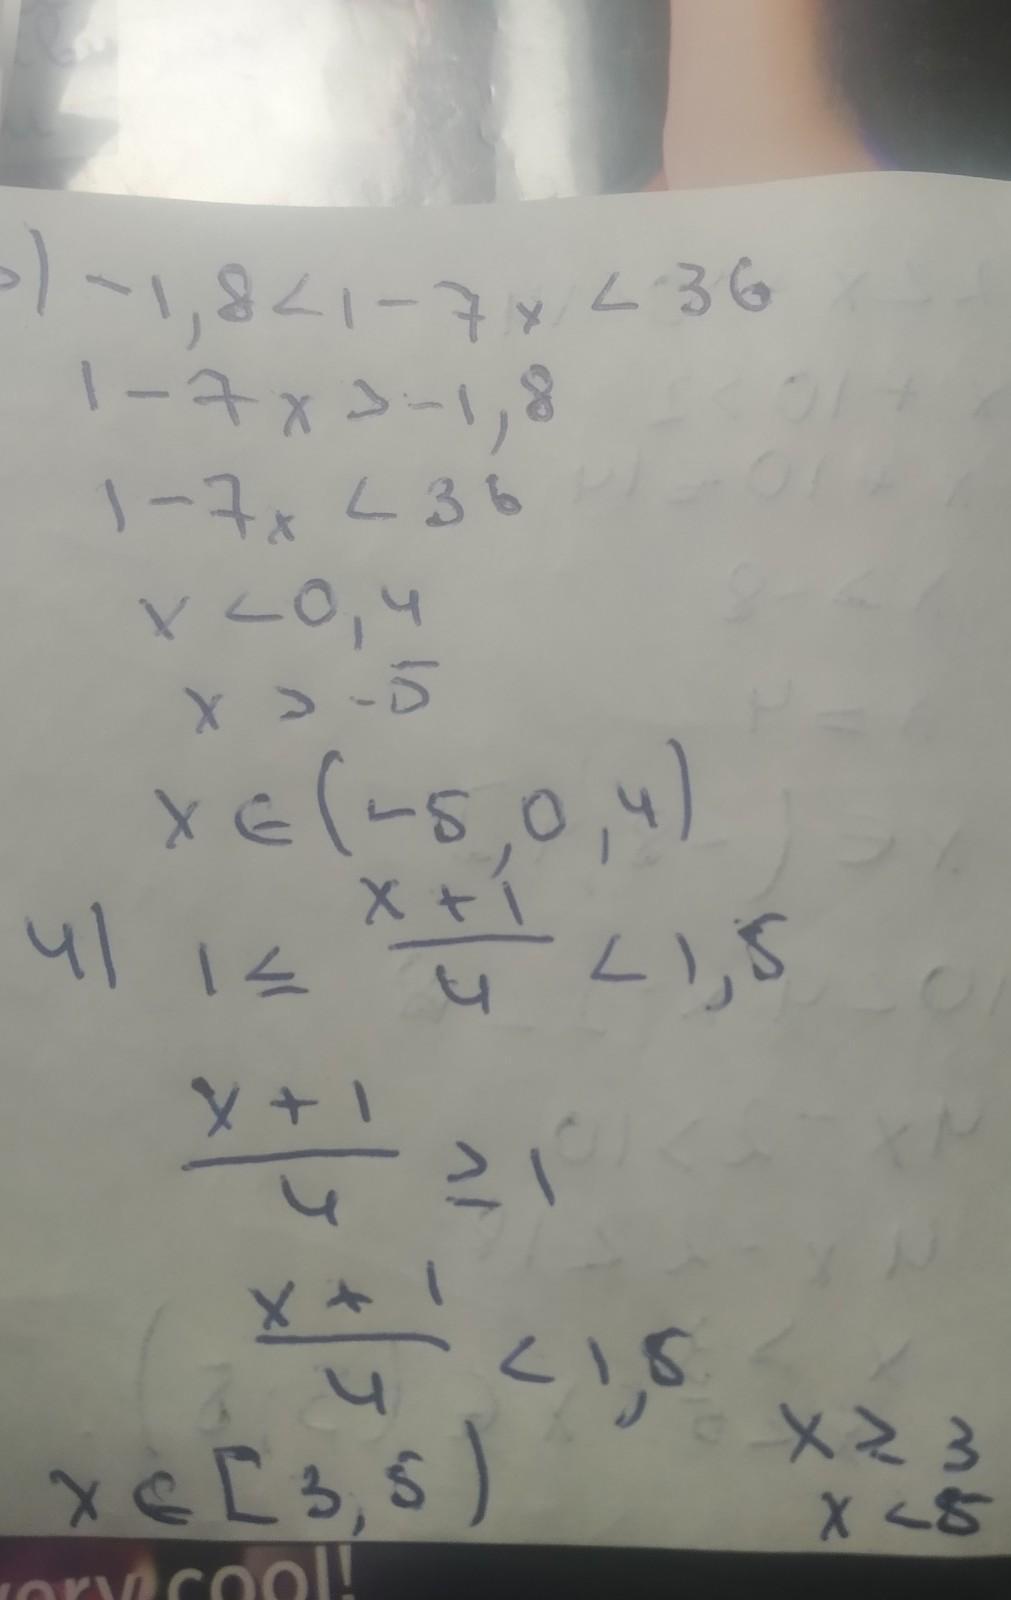 ) -1,8<1-7x<36
1-7x>-1,8
1-7x<36
x<0,4
x>-5
x∈(-5,0,4)
4) 1≤ x+1/4 <1,5
x+1/4 ≥1
x+1/4 <1,5
x≥3
x∈[3,5)
x<5
very cool!